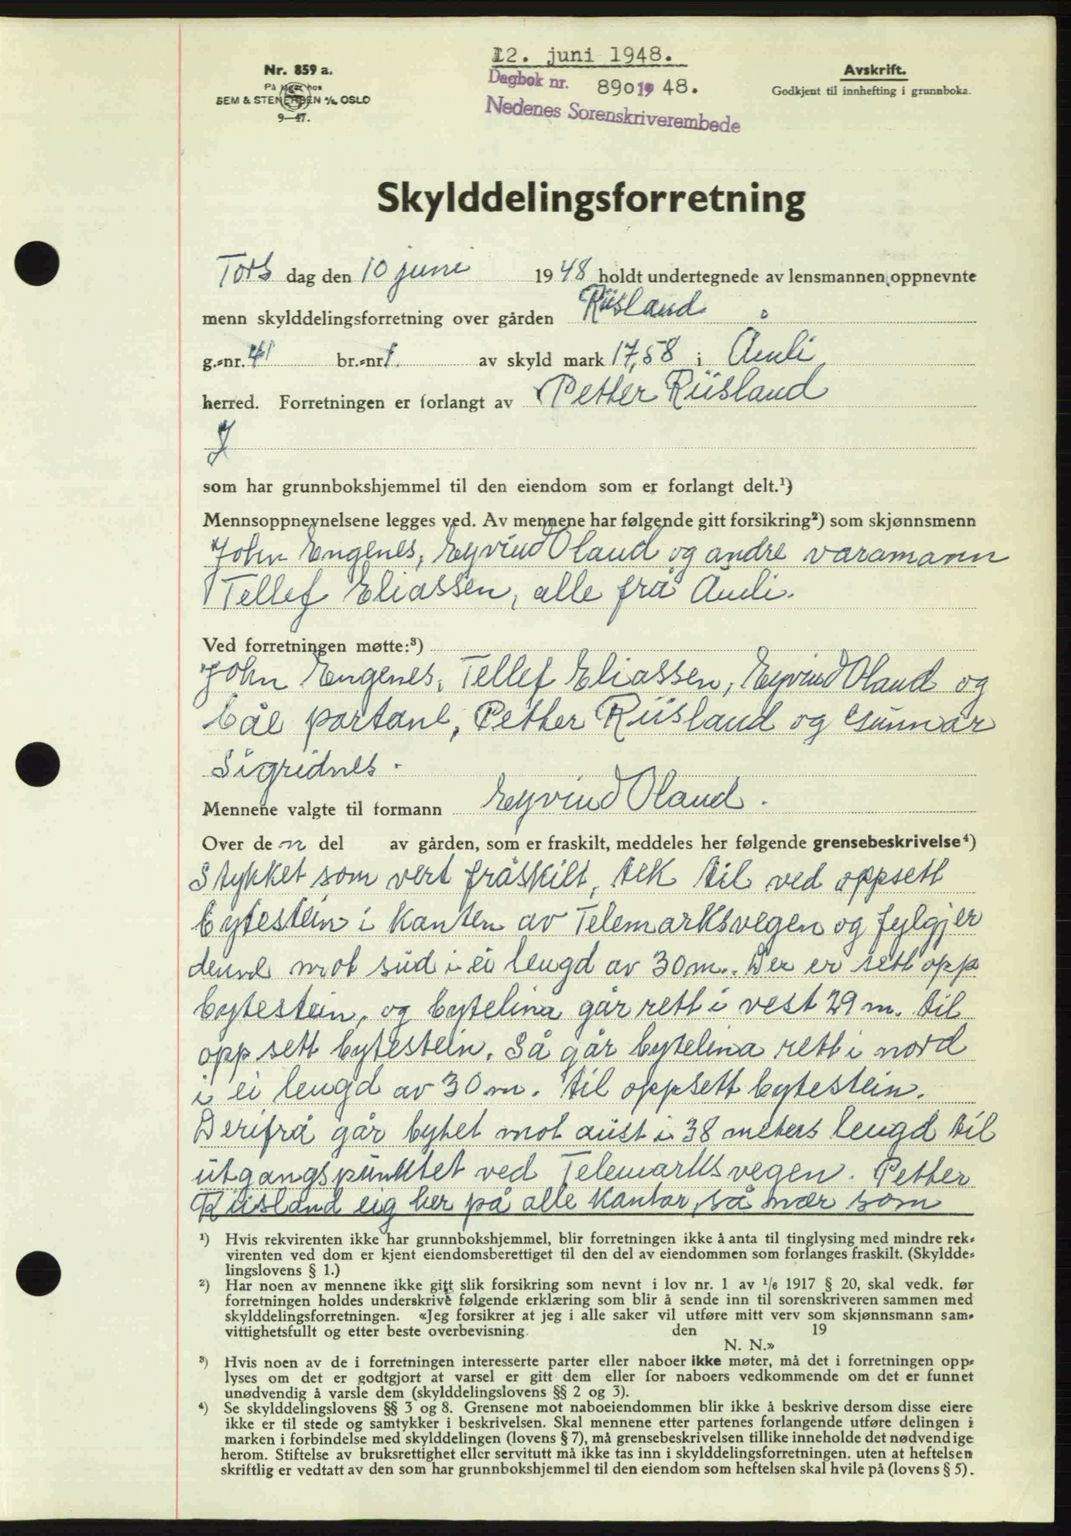 12. juni 1948.
Nr. 859 a.
På lager hos
SEM & STENERSEN A/S, OSLO
9—47.
Dagbok nr. 890 1948.
Nedenes Sorenskriverembede
Avskrift.
Godkjent til innhefting i grunnboka.
Skylddelingsforretning
Tors dag den 10 juni 1948 holdt undertegnede av lensmannen oppnevnte
menn skylddelingsforretning over gården Riisland
g.-nr. 41 br.-nr. 1. av skyld mark 17,58 i Åmli
herred. Forretningen er forlangt av Petter Riisland
som har grunnbokshjemmel til den eiendom som er forlangt delt.¹)
Mennsoppnevnelsene legges ved. Av mennene har følgende gitt forsikring²) som skjønnsmenn
John Engenes, Eyvind Oland og andre varamann
Tellef Eliassen, alle frå Åmli.
Ved forretningen møtte:³)
John Engenes, Tellef Eliassen, Eyvind Oland og
båe partane, Petter Riisland og Gunnar
Sigridnes.
Mennene valgte til formann Eyvind Oland.
Over den del av gården, som er fraskilt, meddeles her følgende grensebeskrivelse⁴)
Stykket som vert fråskilt, tek til ved oppsett
bytestein i kanten av Telemarksvegen og fylgjer
denne mot sud i ei lengd av 30 m. Der er sett opp
bytestein, og bytelina går rett i vest 29 m. til
oppsett bytestein. Så går bytelina rett i nord
i ei lengd av 30 m. til oppsett bytestein.
Derifrå går bytet mot aust i 38 meters lengd til
utgangspunktet ved Telemarksvegen. Petter
Riisland eig her på alle kantar, så nær som
¹) Hvis rekvirenten ikke har grunnbokshjemmel, blir forretningen ikke å anta til tinglysing med mindre rek-
virenten ved dom er kjent eiendomsberettiget til den del av eiendommen som forlanges fraskilt. (Skyldde-
lingslovens § 1.)
²) Har noen av mennene ikke gitt slik forsikring som nevnt i lov nr. 1 av ¹/₆ 1917 § 20, skal vedk. før
forretningen holdes underskrive følgende erklæring som blir å sende inn til sorenskriveren sammen med
skylddelingsforretningen. «Jeg forsikrer at jeg i alle saker vil utføre mitt verv som skjønnsmann sam-
vittighetsfullt og etter beste overbevisning. den 19
N. N.»
³) Hvis noen av de i forretningen interesserte parter eller naboer ikke møter, må det i forretningen opp-
lyses om det er godtgjort at varsel er gitt dem eller for naboers vedkommende om det er funnet
unødvendig å varsle dem (skylddelingslovens §§ 2 og 3).
⁴) Se skylddelingslovens §§ 3 og 8. Grensene mot naboeiendommen blir ikke å beskrive dersom disse eiere
ikke er til stede og samtykker i beskrivelsen. Skal mennene etter partenes forlangende utføre delingen i
marken i forbindelse med skylddelingen (lovens § 7), må grensebeskrivelsen tillike inneholde det nødvendige
herom. Stiftelse av bruksrettighet eller servitutt må ikke tas inn i skylddelingsforretningen, uten at heftelsen
skriftlig er vedtatt av den som har grunnbokshjemmel til den eiendom som heftelsen skal hvile på (lovens § 5).